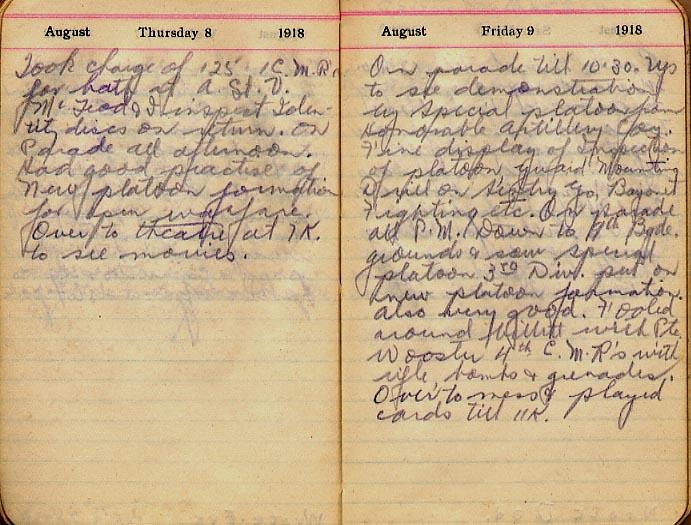 August Thursday 8 1918
Took charge of 125 1C.M.R's
for bath at A. St. V.
McLeod & I inspect Iden-
tity discs on return. On
Parade all afternoon.
Had good practise of
New platoon formation
for open warfare.
Over to theatre at 7K.
to see movies.
August Friday 9 1918
On parade till 10.30. Up
to see demonstration
by Special platoon from
Honorable Artillery Coy.
Fine display of Inspection
of platoon, Guard Mounting
Drill on Sentry Go, Bayonet
Fighting etc. On parade
all P.M. Down to 9th Bgde.
grounds & saw special
platoon 3rd Div. put on
new platoon formation.
Also very good. Fooled
around with Pte
Wooster 4th C.M.R's with
rifle, bombs & grenades.
Over to mess & played
cards till 11K.